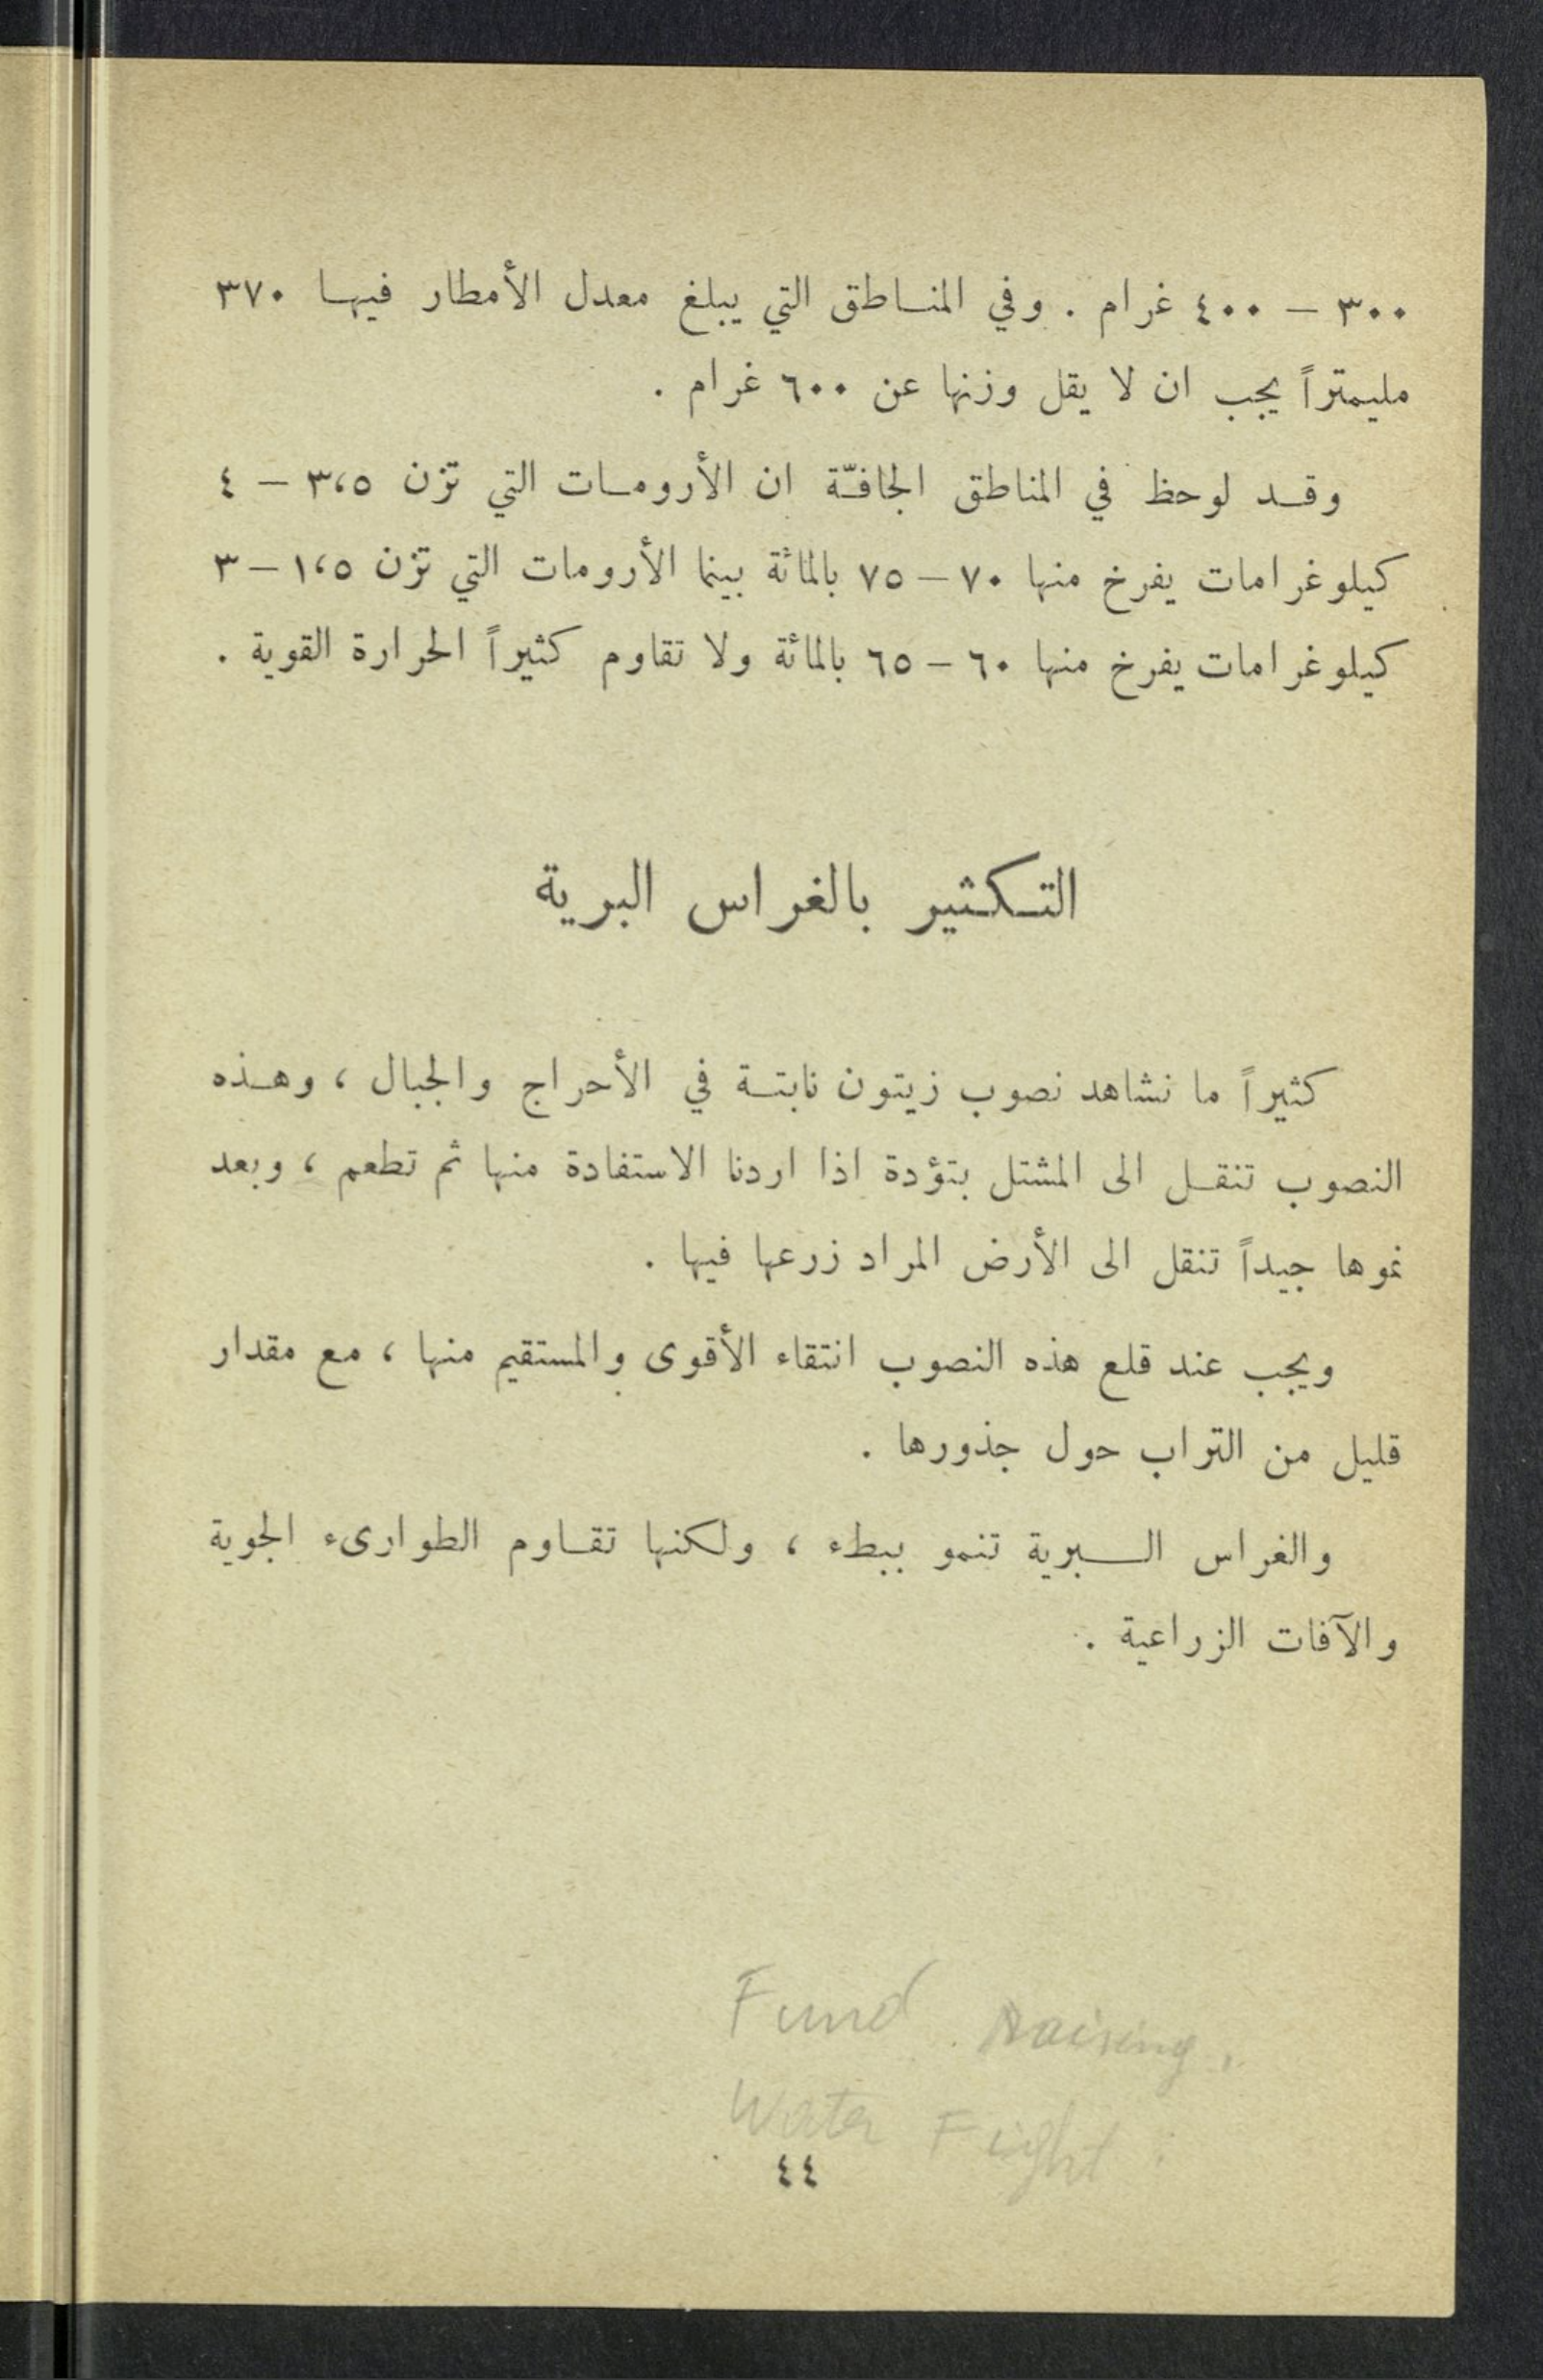 ٣٠٠ – ٤٠٠ غرام . وفي المناطق التي يبلغ معدل الأمطار فيها ٣٧٠
مليمتراً يجب ان لا يقل وزنها عن ٦٠٠ غرام .
وقد لوحظ في المناطق الجافّة ان الأرومات التي تزن ٣،٥ – ٤
كيلوغرامات يفرخ منها ٧٠ – ٧٥ بالمائة بينما الأرومات التي تزن ١،٥ – ٣
كيلوغرامات يفرخ منها ٦٠ – ٦٥ بالمائة ولا تقاوم كثيراً الحرارة القوية .
التكثير بالغراس البرية
كثيراً ما نشاهد نصوب زيتون نابتة في الأحراج والجبال ، وهذه
النصوب تنقل الى المشتل بتؤدة اذا اردنا الاستفادة منها ثم تطعم ، وبعد
نموها جيداً تنقل الى الأرض المراد زرعها فيها .
ويجب عند قلع هذه النصوب انتقاء الأقوى والمستقيم منها ، مع مقدار
قليل من التراب حول جذورها .
والغراس البرية تنمو ببطء ، ولكنها تقاوم الطوارىء الجوية
والآفات الزراعية .
Fund raising.
Water Fight
٤٤